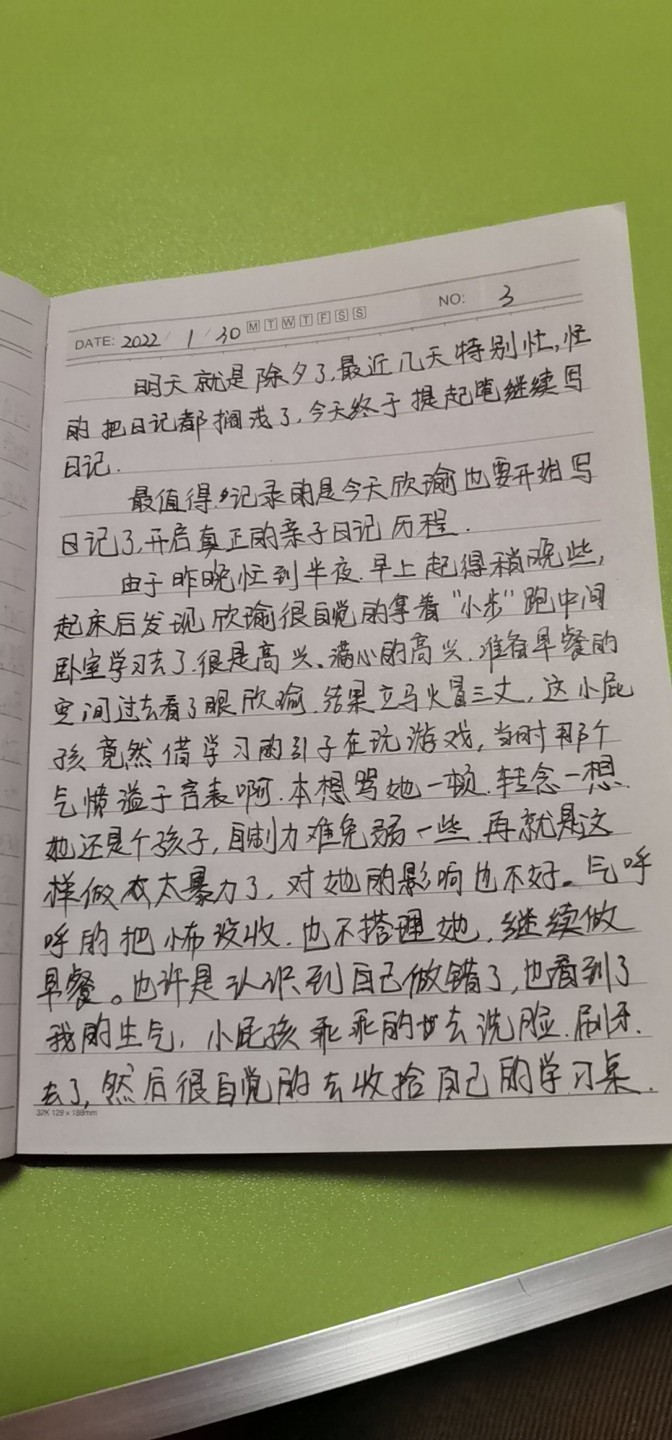 DATE: 2022 / 1 / 30 M T W T F S S NO: 3
明天就是除夕了,最近几天特别忙,忙
的把日记都搁浅了,今天终于提起笔继续写
日记.
最值得记录的是今天欣瑜也要开始写
日记了,开启真正的亲子日记历程.
由于昨晚忙到半夜.早上起得稍晚些,
起床后发现欣瑜很自觉的拿着“小步”跑中间
卧室学习去了.很是高兴、满心的高兴.准备早餐的
空间过去看了眼欣瑜.结果立马火冒三丈,这小屁
孩竟然借学习的引子在玩游戏,当时那个
气愤溢于言表啊.本想骂她一顿.转念一想.
她还是个孩子,自制力难免弱一些.再就是这
样做太暴力了,对她的影响也不好。气呼
呼的把怖没收.也不搭理她,继续做
早餐。也许是认识到自己做错了,也看到了
我的生气,小屁孩乖乖的去洗脸.刷牙.
去了,然后很自觉的去收拾自己的学习桌.
32K 129×188mm